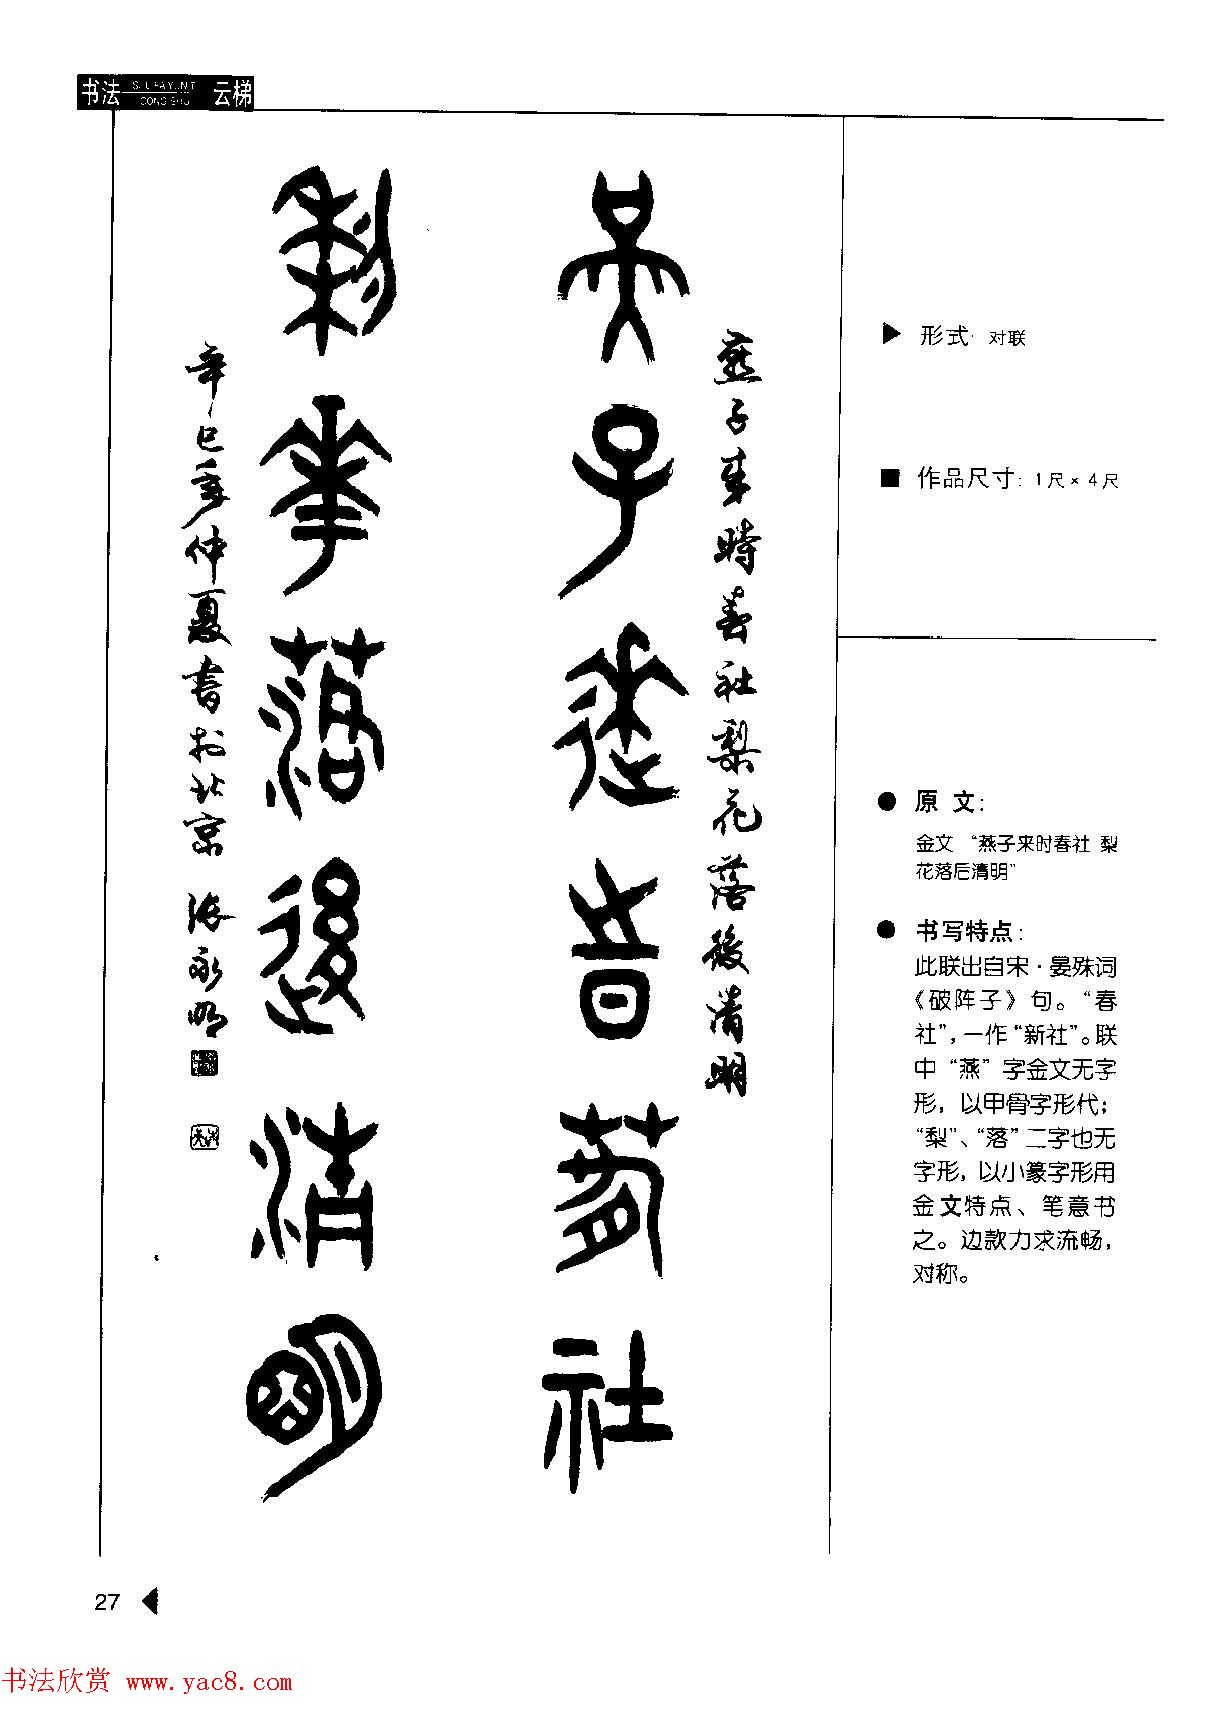 书法 SHUFAYUNTI CONGSHU 云梯
燕子来時春社
梨花落後清明
燕子来時春社梨花落後清明
辛巳年仲夏書於北京 张永明
▶ 形式· 对联
■ 作品尺寸: 1尺×4尺
● 原 文:
金文 “燕子来时春社 梨
花落后清明”
● 书写特点:
此联出自宋·晏殊词
《破阵子》句。“春
社”,一作“新社”。联
中“燕”字金文无字
形, 以甲骨字形代;
“梨”、“落”二字也无
字形, 以小篆字形用
金文特点、笔意书
之。边款力求流畅,
对称。
27
书法欣赏 www.yac8.com